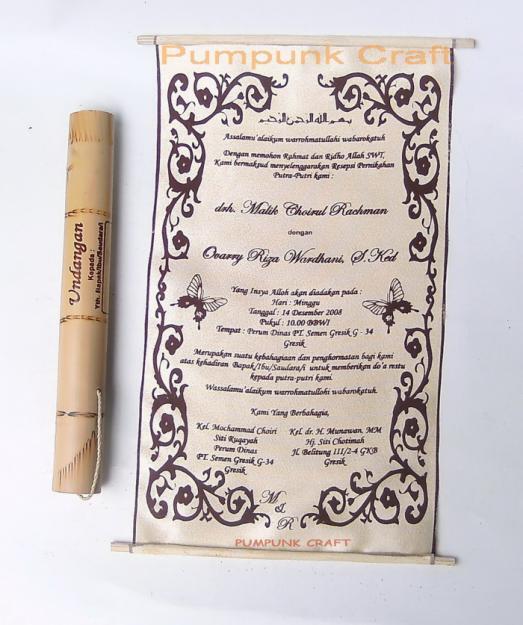 Pumpunk Craft
Undangan
Kepada :
Yth. Bapak/Ibu/Saudara/i
بسم الله الرحمن الرحيم
Assalamu'alaikum warrohmatullahi wabarokatuh
Dengan memohon Rahmat dan Ridho Allah SWT,
Kami bermaksud menyelenggarakan Resepsi Pernikahan
Putra-Putri kami :
drh. Malik Choirul Rachman
dengan
Ovarry Riza Wardhani, S.Ked
Yang Insya Alloh akan diadakan pada :
Hari : Minggu
Tanggal : 14 Desember 2008
Pukul : 10.00 BBWI
Tempat : Perum Dinas PT. Semen Gresik G - 34
Gresik
Merupakan suatu kebahagiaan dan penghormatan bagi kami
atas kehadiran Bapak/Ibu/Saudara/i untuk memberikan do'a restu
kepada putra-putri kami.
Wassalamu'alaikum warrohmatullahi wabarokatuh.
Kami Yang Berbahagia,
Kel. Mochammad Choiri
Siti Ruqayah
Perum Dinas
PT. Semen Gresik G-34
Gresik
Kel. dr. H. Munawan, MM
Hj. Siti Chotimah
Jl. Belitung 111/2-4 GKB
Gresik
M
&
R
PUMPUNK CRAFT